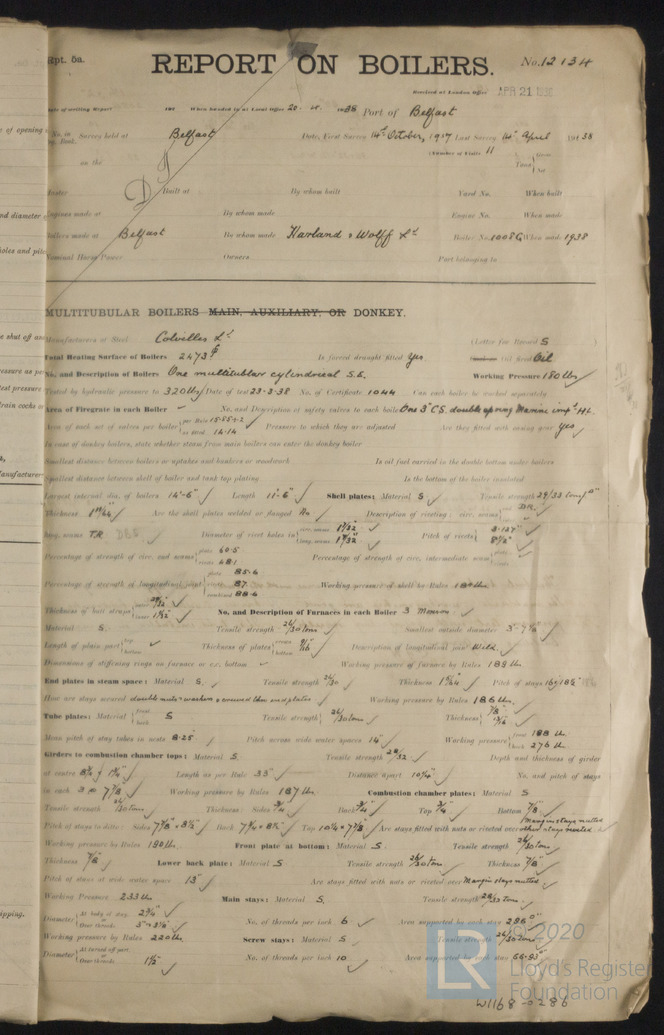 Rpt. 5a.
REPORT ON BOILERS.
No. 12134
Received at London Office APR 21 1938
Date of writing Report 193 When handed in at Local Office 20. 4. 1938 Port of Belfast
No. in Reg. Book. Survey held at Belfast Date, First Survey 14th October, 1937 Last Survey 14th April 1938
on the (Number of Visits 11
Tons Gross Net
Master Built at By whom built Yard No. When built
Engines made at By whom made Engine No. When made
Boilers made at Belfast By whom made Harland & Wolff Ld Boiler No. 1008G When made 1938
Nominal Horse Power Owners Port belonging to
MULTITUBULAR BOILERS MAIN, AUXILIARY, OR DONKEY.
Manufacturers of Steel Colvilles Ld (Letter for Record S
Total Heating Surface of Boilers 2473 Is forced draught fitted Yes Oil fired Oil
No. and Description of Boilers One multitubular cylindrical S.E. Working Pressure 180 lbs
Tested by hydraulic pressure to 320 lbs Date of test 23-3-38 No. of Certificate 1044 Can each boiler be worked separately
Area of Firegrate in each Boiler No. and Description of safety valves to each boiler One 3" C.S. double spring Marine impd H.L.
Area of each set of valves per boiler per Rule as fitted 14.14 Pressure to which they are adjusted Are they fitted with easing gear Yes
In case of donkey boilers, state whether steam from main boilers can enter the donkey boiler
Smallest distance between boilers or uptakes and bunkers or woodwork Is oil fuel carried in the double bottom under boilers
Smallest distance between shell of boiler and tank top plating Is the bottom of the boiler insulated
Largest internal dia. of boilers 14'-6" Length 11'-6" Shell plates: Material S Tensile strength 29/33 tons/□"
Thickness Are the shell plates welded or flanged No Description of riveting: circ. seams DR
long. seams T.R. DBS Diameter of rivet holes in circ. seams 1 9/32 long. seams 1 9/32 Pitch of rivets 3.127" 8 1/2"
Percentage of strength of circ. end seams plate 60.5 rivets 48.1 Percentage of strength of circ. intermediate seam
Percentage of strength of longitudinal joint plate 85.6 rivets 87 combined 88.6 Working pressure of shell by Rules 180 lbs
Thickness of butt straps outer 29/32 inner 1 1/32 No. and Description of Furnaces in each Boiler 3 Morison
Material S. Tensile strength 26/30 tons Smallest outside diameter 3'-7 1/8"
Length of plain part top bottom Thickness of plates crown bottom 9/16 Description of longitudinal joint Weld.
Dimensions of stiffening rings on furnace or c.c. bottom Working pressure of furnace by Rules 188 lbs
End plates in steam space: Material S. Tensile strength 26/30 Thickness 1 9/64 Pitch of stays 16 x 18 1/2
How are stays secured double nuts & washers & screwed thro' end plates Working pressure by Rules 186 lbs.
Tube plates: Material front back S Tensile strength 26/30 tons Thickness 7/8" 13/16"
Mean pitch of stay tubes in nests 8.25 Pitch across wide water spaces 14" Working pressure front 188 lbs back 276 lbs
Girders to combustion chamber tops: Material S. Tensile strength 28/32 Depth and thickness of girder
at centre 8 3/4 x 1 3/4" Length as per Rule 33" Distance apart 10 1/4" No. and pitch of stays
in each 3 @ 7 7/8" Working pressure by Rules 187 lbs Combustion chamber plates: Material S
Tensile strength 26/30 tons Thickness: Sides 3/4 Back 3/4" Top 3/4 Bottom 7/8"
Pitch of stays to ditto: Sides 7 7/8" x 8 1/2" Back 7 3/4 x 8 1/2" Top 10 1/4 x 7 7/8" Are stays fitted with nuts or riveted over Margin stays nutted other stays riveted
Working pressure by Rules 190 lbs. Front plate at bottom: Material S. Tensile strength 26/30 tons
Thickness 7/8" Lower back plate: Material S Tensile strength 26/30 tons Thickness 7/8"
Pitch of stays at wide water space 13" Are stays fitted with nuts or riveted over Margin stays nutted
Working Pressure 233 lbs Main stays: Material S. Tensile strength 28/32 tons
Diameter At body of stay, 2 3/4" or Over threads 3" & 3 1/4" No. of threads per inch 6 Area supported by each stay 296 □"
Working pressure by Rules 220 lbs Screw stays: Material S Tensile strength 26/30 tons
Diameter At turned off part, or Over threads 1 1/2" No. of threads per inch 10 Area supported by each stay 66.93 □"
© 2020
LR
Lloyd's Register
Foundation
W1168-0286